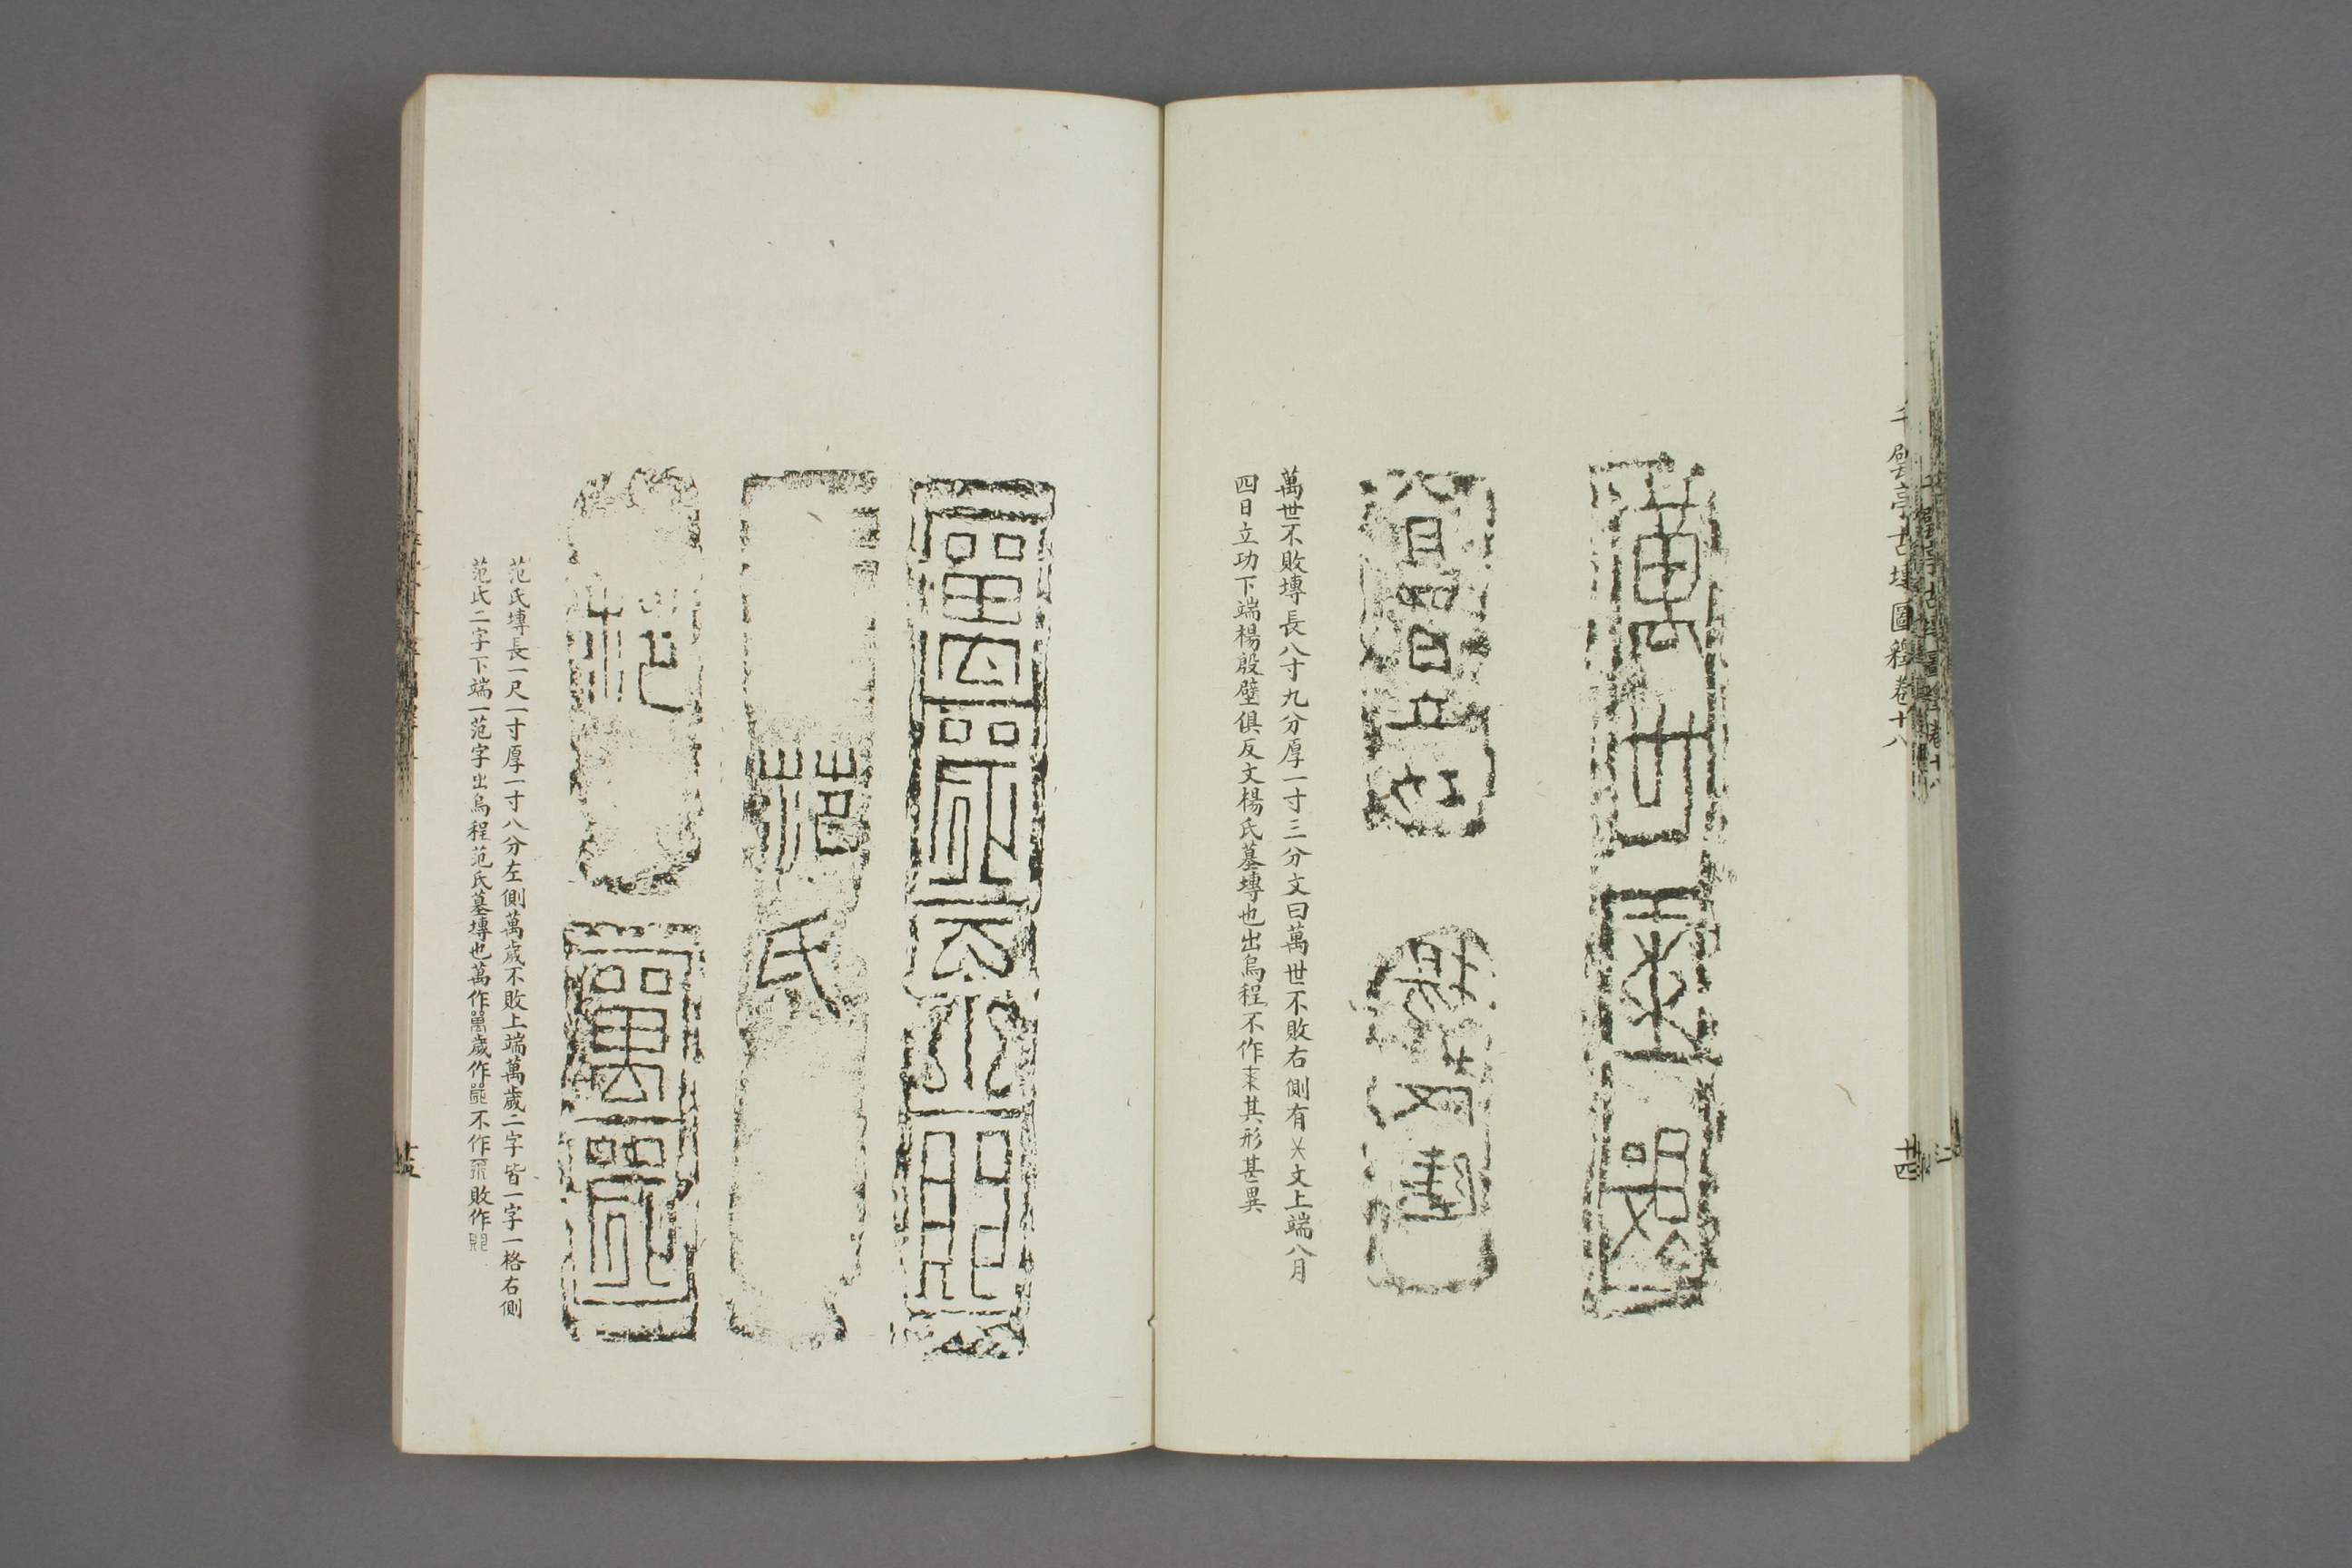 千甓亭古塼圖釋卷十八
廿四
萬世不敗
八月四日立功
萬世不敗塼長八寸九分厚一寸三分文曰萬世不敗右側有㐅文上端八月
四日立功下端楊殷壁俱反文楊氏墓塼也出烏程不作其形甚異
萬歲不敗
范氏
范
萬歲
范氏塼長一尺一寸厚一寸八分左側萬歲不敗上端萬歲二字皆一字一格右側
范氏二字下端一范字出烏程范氏墓塼也萬作歲作不作敗作